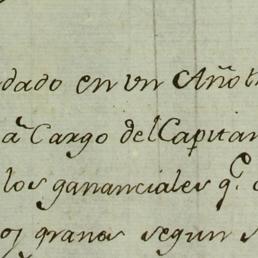 dado en un Año
a Cargo del Capitan
los gananciales q.e
granos segun s